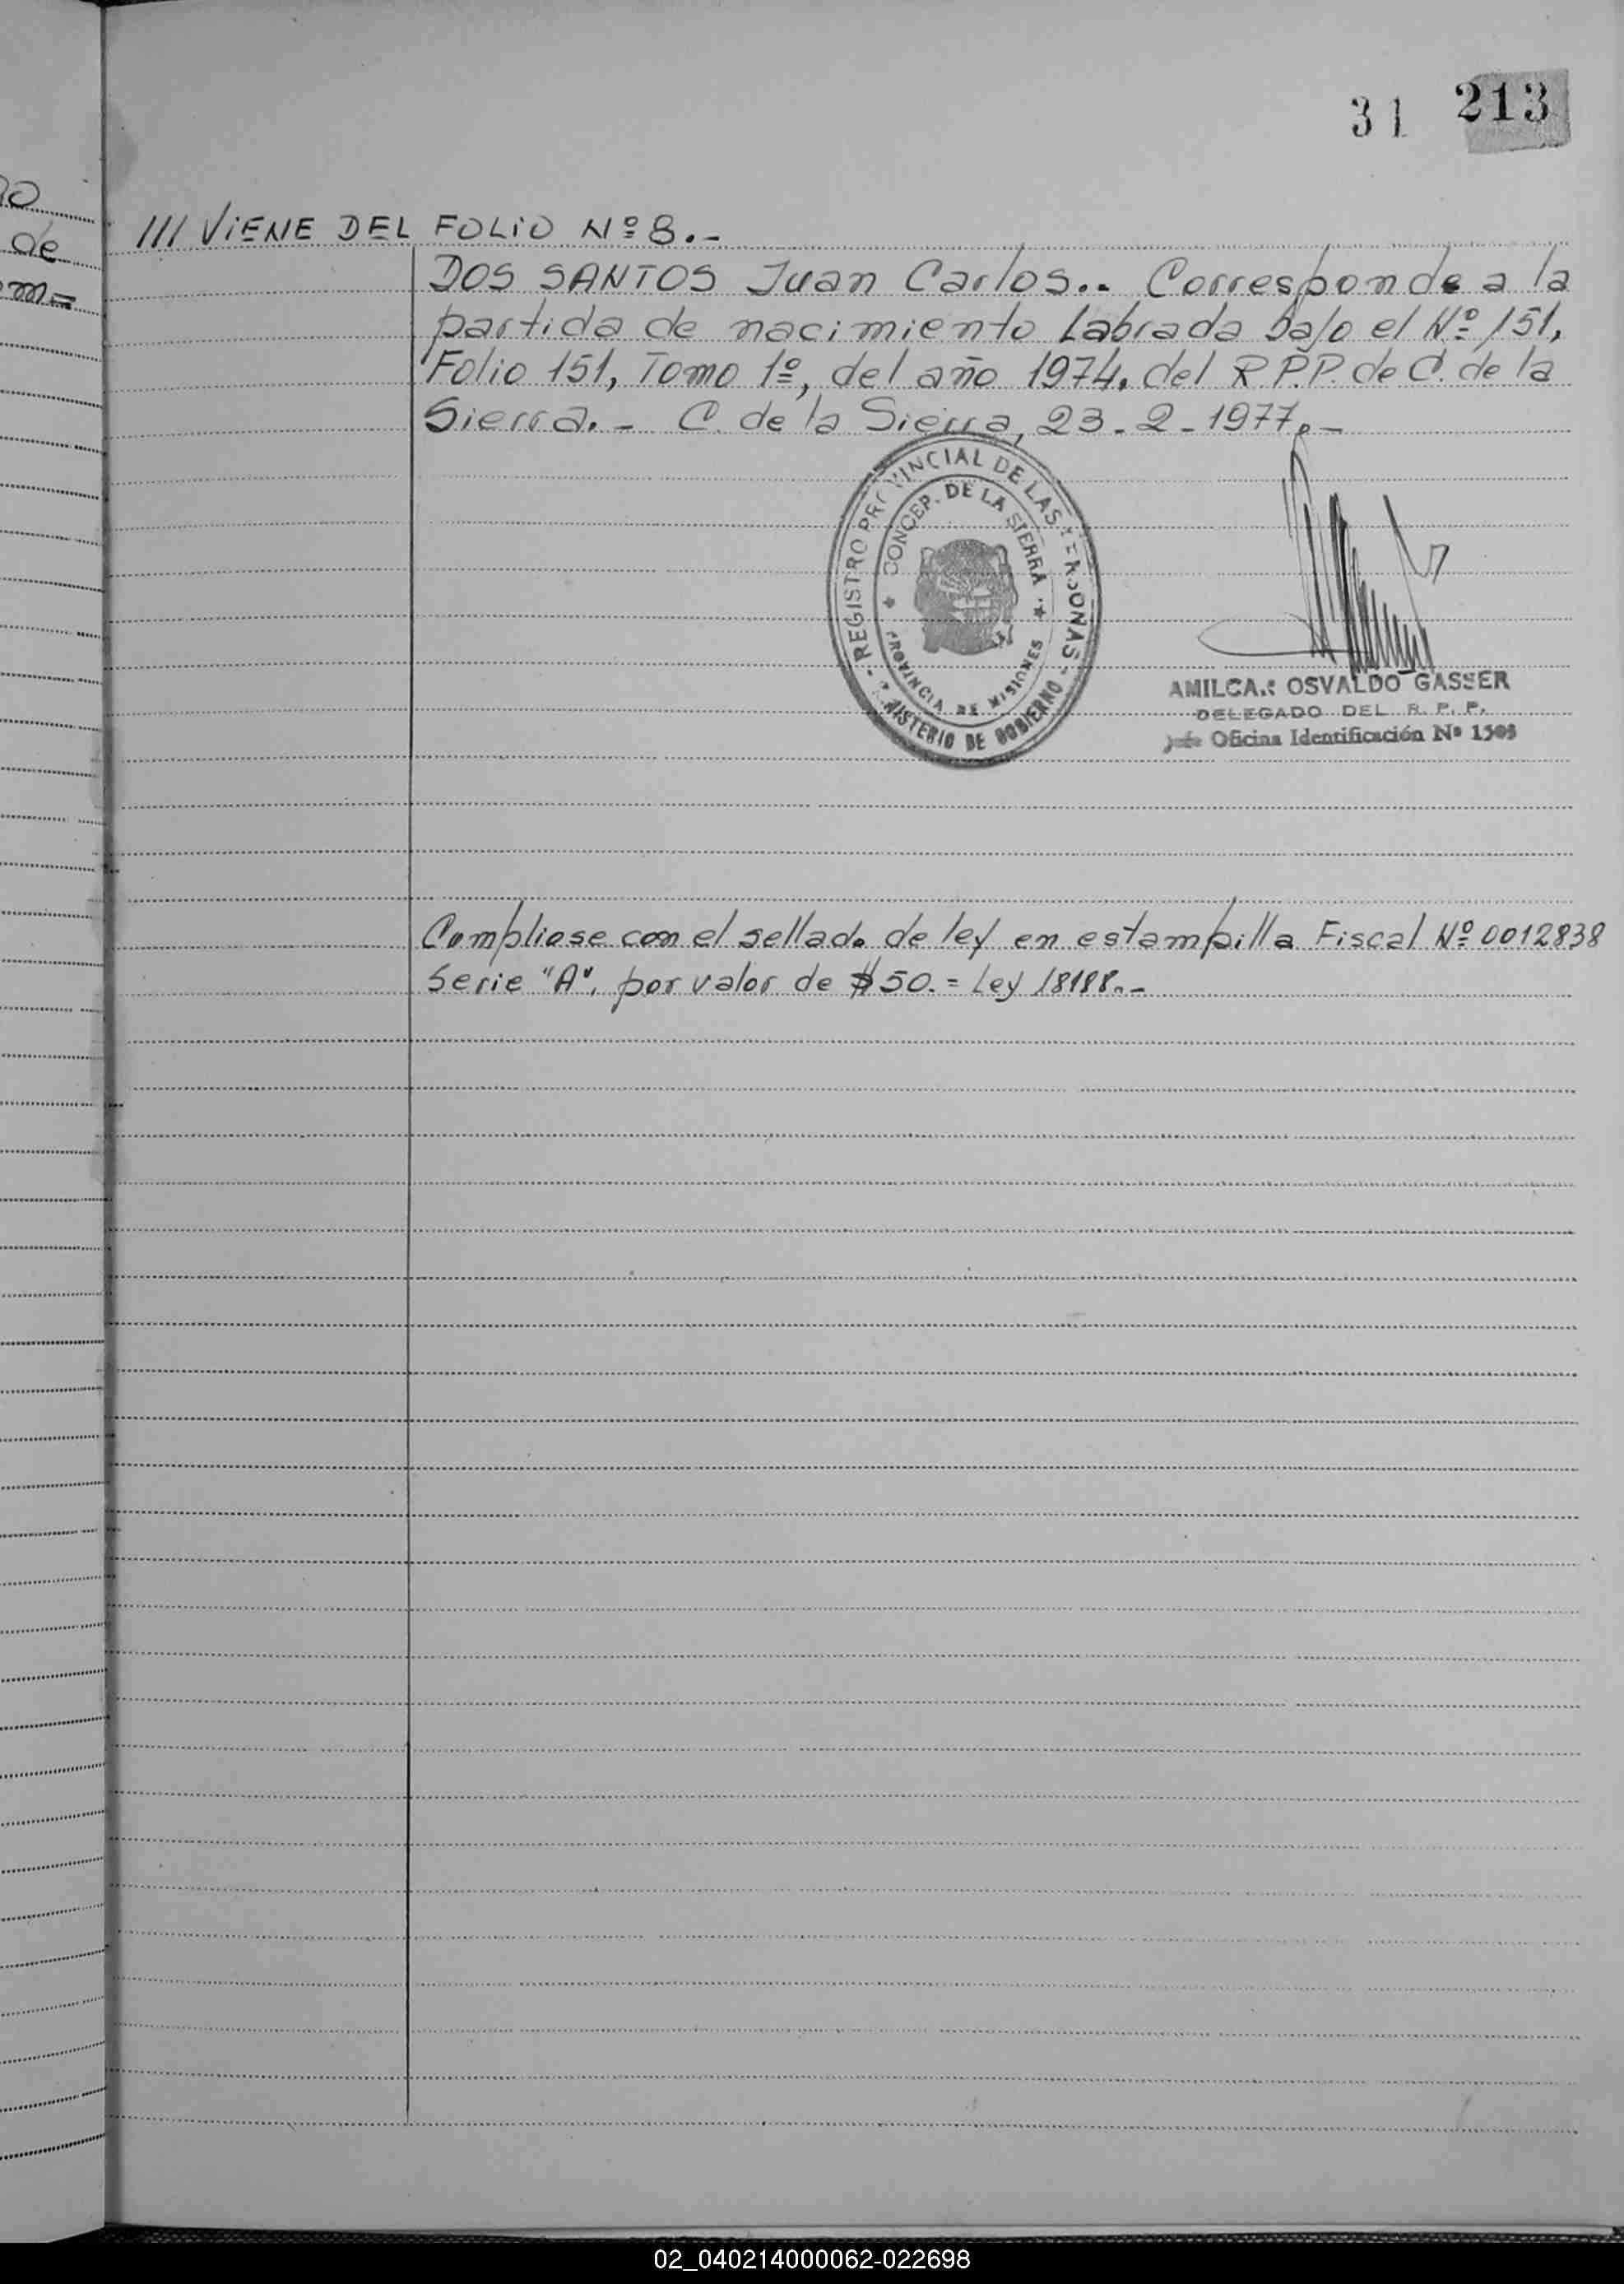 31 213
III VIENE DEL FOLIO Nº 8.-
DOS SANTOS Juan Carlos.- Corresponde a la
partida de nacimiento Labrada bajo el Nº 151,
Folio 151, Tomo 1º, del año 1974, del R.P.P. de C. de la
Sierra.- C. de la Sierra, 23-2-1977.-
REGISTRO PROVINCIAL DE LAS PERSONAS
MINISTERIO DE GOBIERNO
CONCEP. DE LA SIERRA
PROVINCIA DE MISIONES
AMILCAR OSVALDO GASSER
DELEGADO DEL R. P. P.
Jefe Oficina Identificación Nº
Compliase con el sellado de ley en estampilla Fiscal Nº 0012838
Serie "A", por valor de $50.= Ley 18188.-
de
02_040214000062-022698